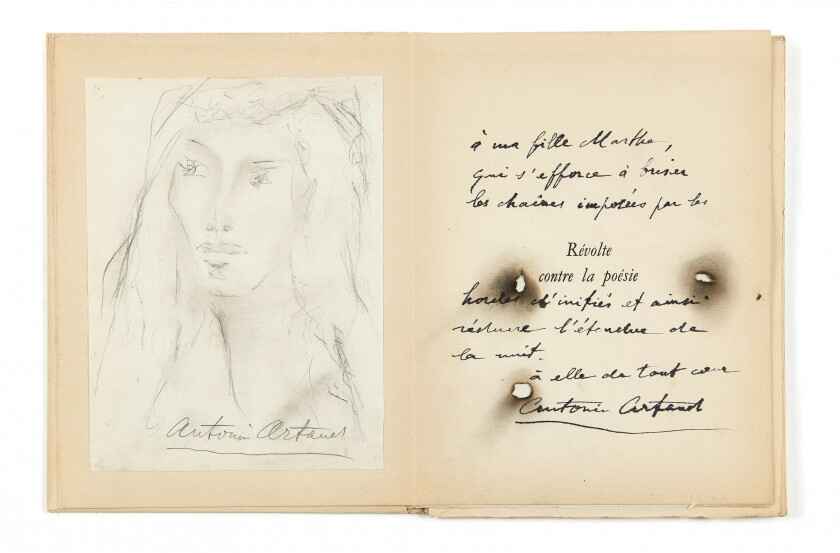 Antonin Artaud
à ma fille Marthe,
qui s'efforce à briser
les chaînes imposées par les
Révolte
contre la poésie
hordes d'inifiés et ainsi
réduire l'étendue de
la nuit.
à elle de tout cœur
Antonin Artaud